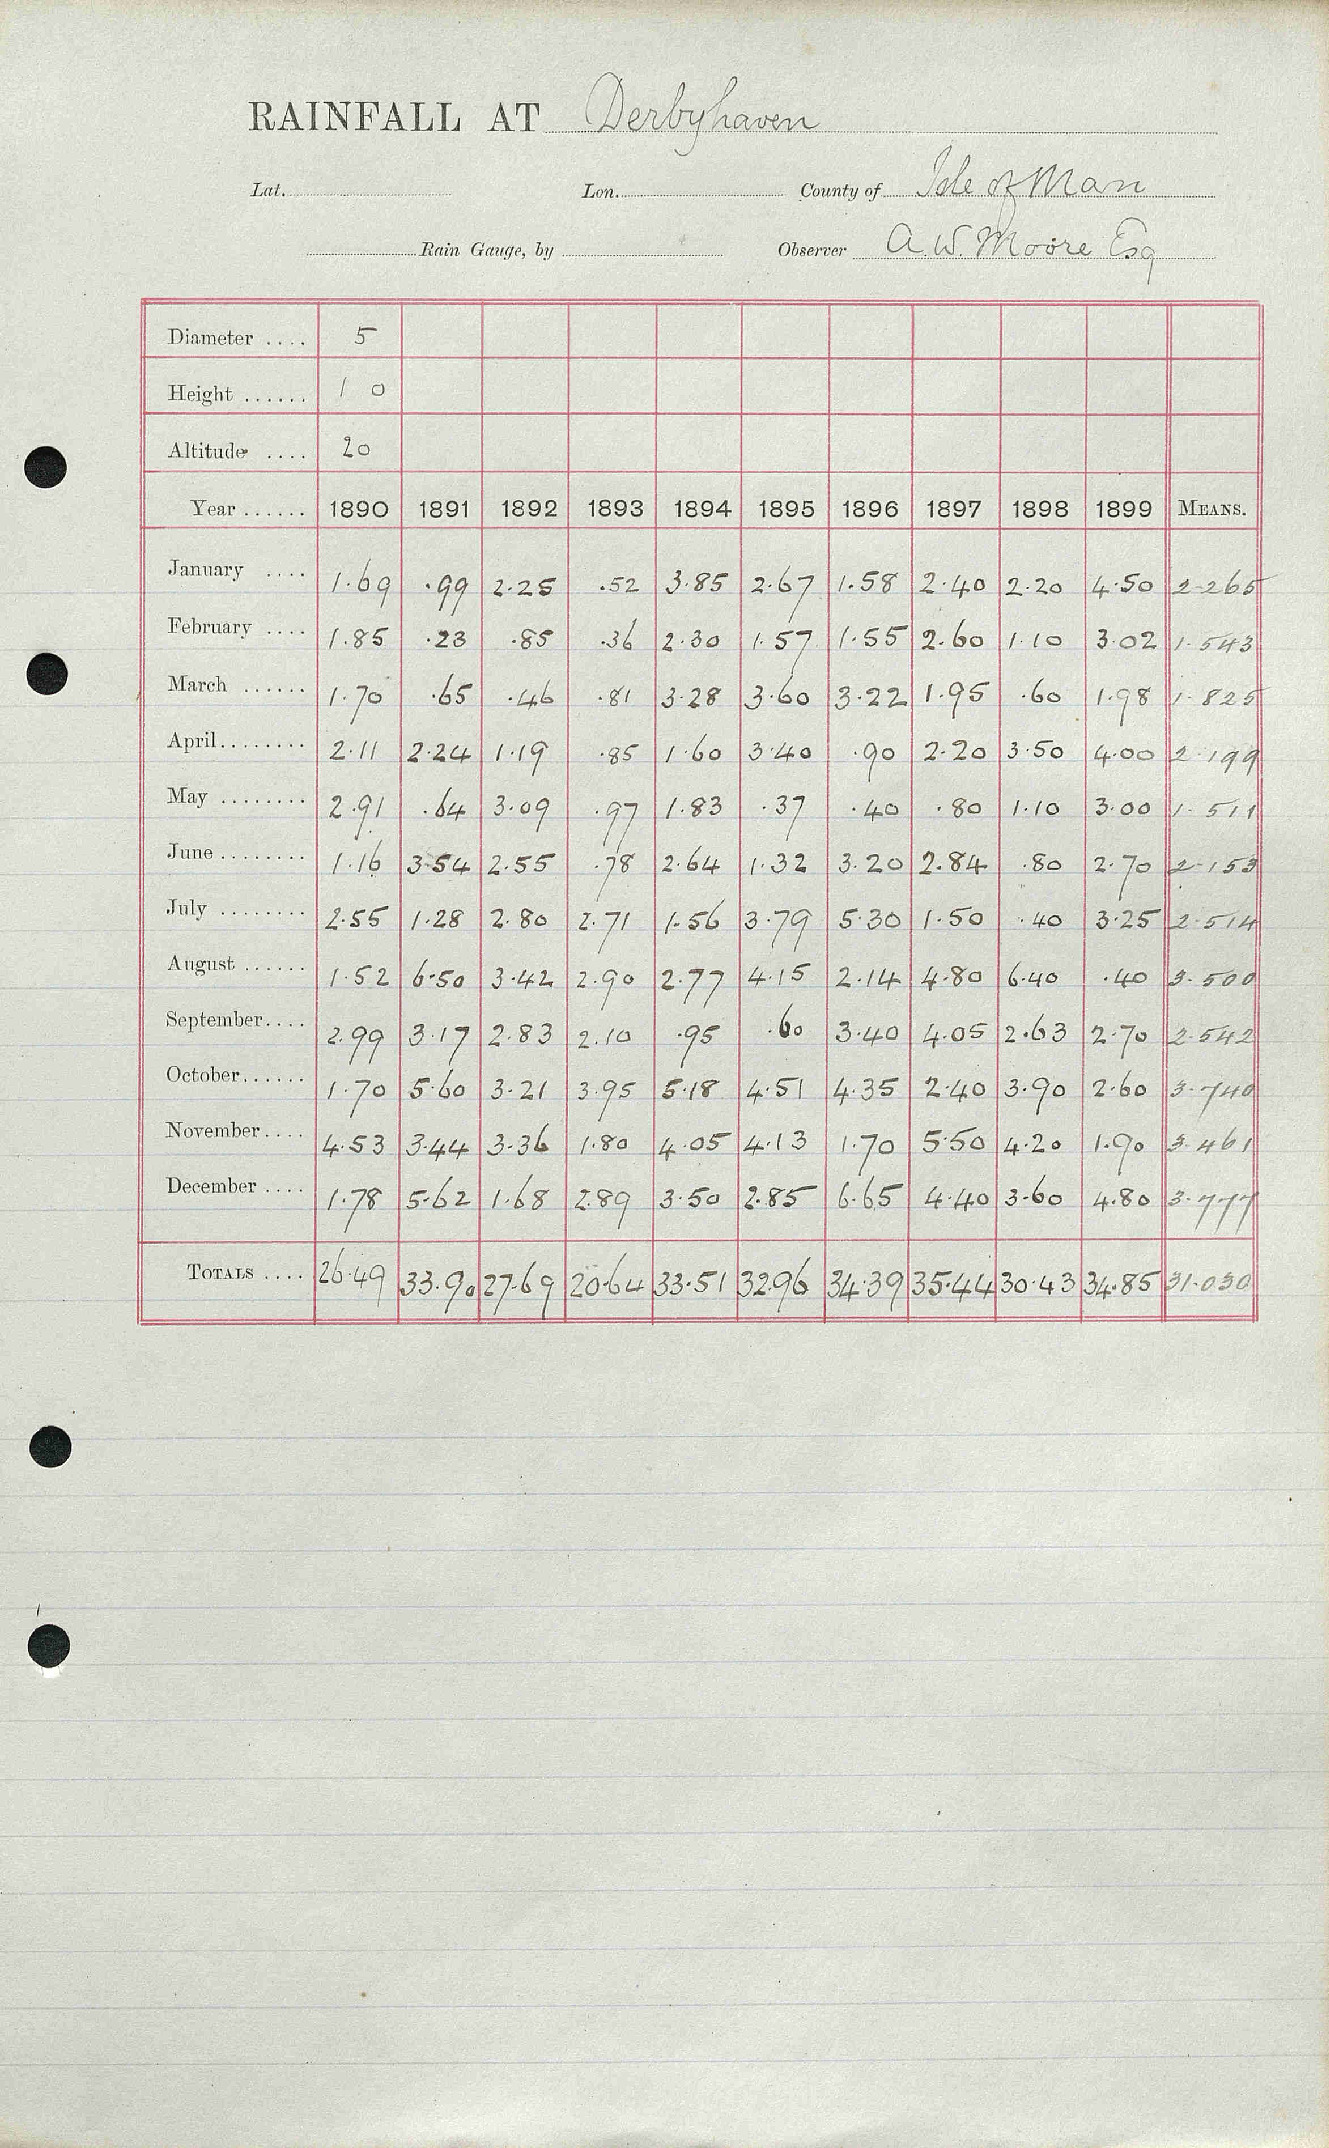 RAINFALL AT Derbyhaven
Lat. Lon. County of Isle of Man
Rain Gauge, by Observer A. W. Moore Esq
Diameter .... 5
Height ...... 1 0
Altitude .... 20
Year ...... 1890 1891 1892 1893 1894 1895 1896 1897 1898 1899 MEANS.
January .... 1.69 .99 2.25 .52 3.85 2.67 1.58 2.40 2.20 4.50 2.265
February .... 1.85 .23 .85 .36 2.30 1.57 1.55 2.60 1.10 3.02 1.543
March ...... 1.70 .65 .46 .81 3.28 3.60 3.22 1.95 .60 1.98 1.825
April........ 2.11 2.24 1.19 .85 1.60 3.40 .90 2.20 3.50 4.00 2.199
May ........ 2.91 .64 3.09 .97 1.83 .37 .40 .80 1.10 3.00 1.511
June ........ 1.16 3.54 2.55 .78 2.64 1.32 3.20 2.84 .80 2.70 2.153
July ........ 2.55 1.28 2.80 2.71 1.56 3.79 5.30 1.50 .40 3.25 2.514
August ...... 1.52 6.50 3.42 2.90 2.77 4.15 2.14 4.80 6.40 .40 3.500
September.... 2.99 3.17 2.83 2.10 .95 .60 3.40 4.05 2.63 2.70 2.542
October...... 1.70 5.60 3.21 3.95 5.18 4.51 4.35 2.40 3.90 2.60 3.740
November.... 4.53 3.44 3.36 1.80 4.05 4.13 1.70 5.50 4.20 1.90 3.461
December .... 1.78 5.62 1.68 2.89 3.50 2.85 6.65 4.40 3.60 4.80 3.777
TOTALS .... 26.49 33.90 27.69 20.64 33.51 32.96 34.39 35.44 30.43 34.85 31.030